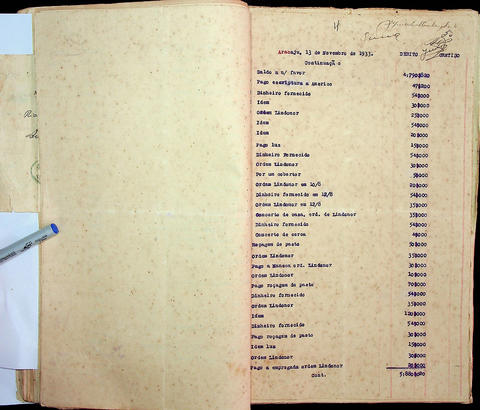 Aracaju, 13 de Novembro de 1933. DEBITO CREDITO
Continuação
Saldo a n/ favor 4:790$820
Pago escriptura a Americo 47$200
Dinheiro fornecido 54$000
Idem 30$000
Ordem Lindonor 25$000
Idem 54$000
Idem 20$000
Pago luz 15$000
Dinheiro Fornecido 54$000
Ordem Lindonor 30$000
Por um cobertor 5$000
Ordem Lindonor em 10/8 20$000
Dinheiro fornecido em 12/8 54$000
Ordem Lindonor em 12/8 35$000
Concerto de casa, ord. de Lindonor 35$000
Dinheiro fornecido 54$000
Concerto de cerca 4$000
Roçagem de pasto 50$000
Ordem Lindonor 35$000
Pago a Manson ord. Lindonor 30$000
Ordem Lindonor 10$000
Pago roçagem de pasto 70$000
Dinheiro fornecido 54$000
Ordem Lindonor 35$000
Idem 120$000
Dinheiro fornecido 54$000
Pago roçagem de pasto 30$000
Idem luz 15$000
Ordem Lindonor 30$000
Pago a empregada ordem Lindonor 20$000
Cont. 5:880$020